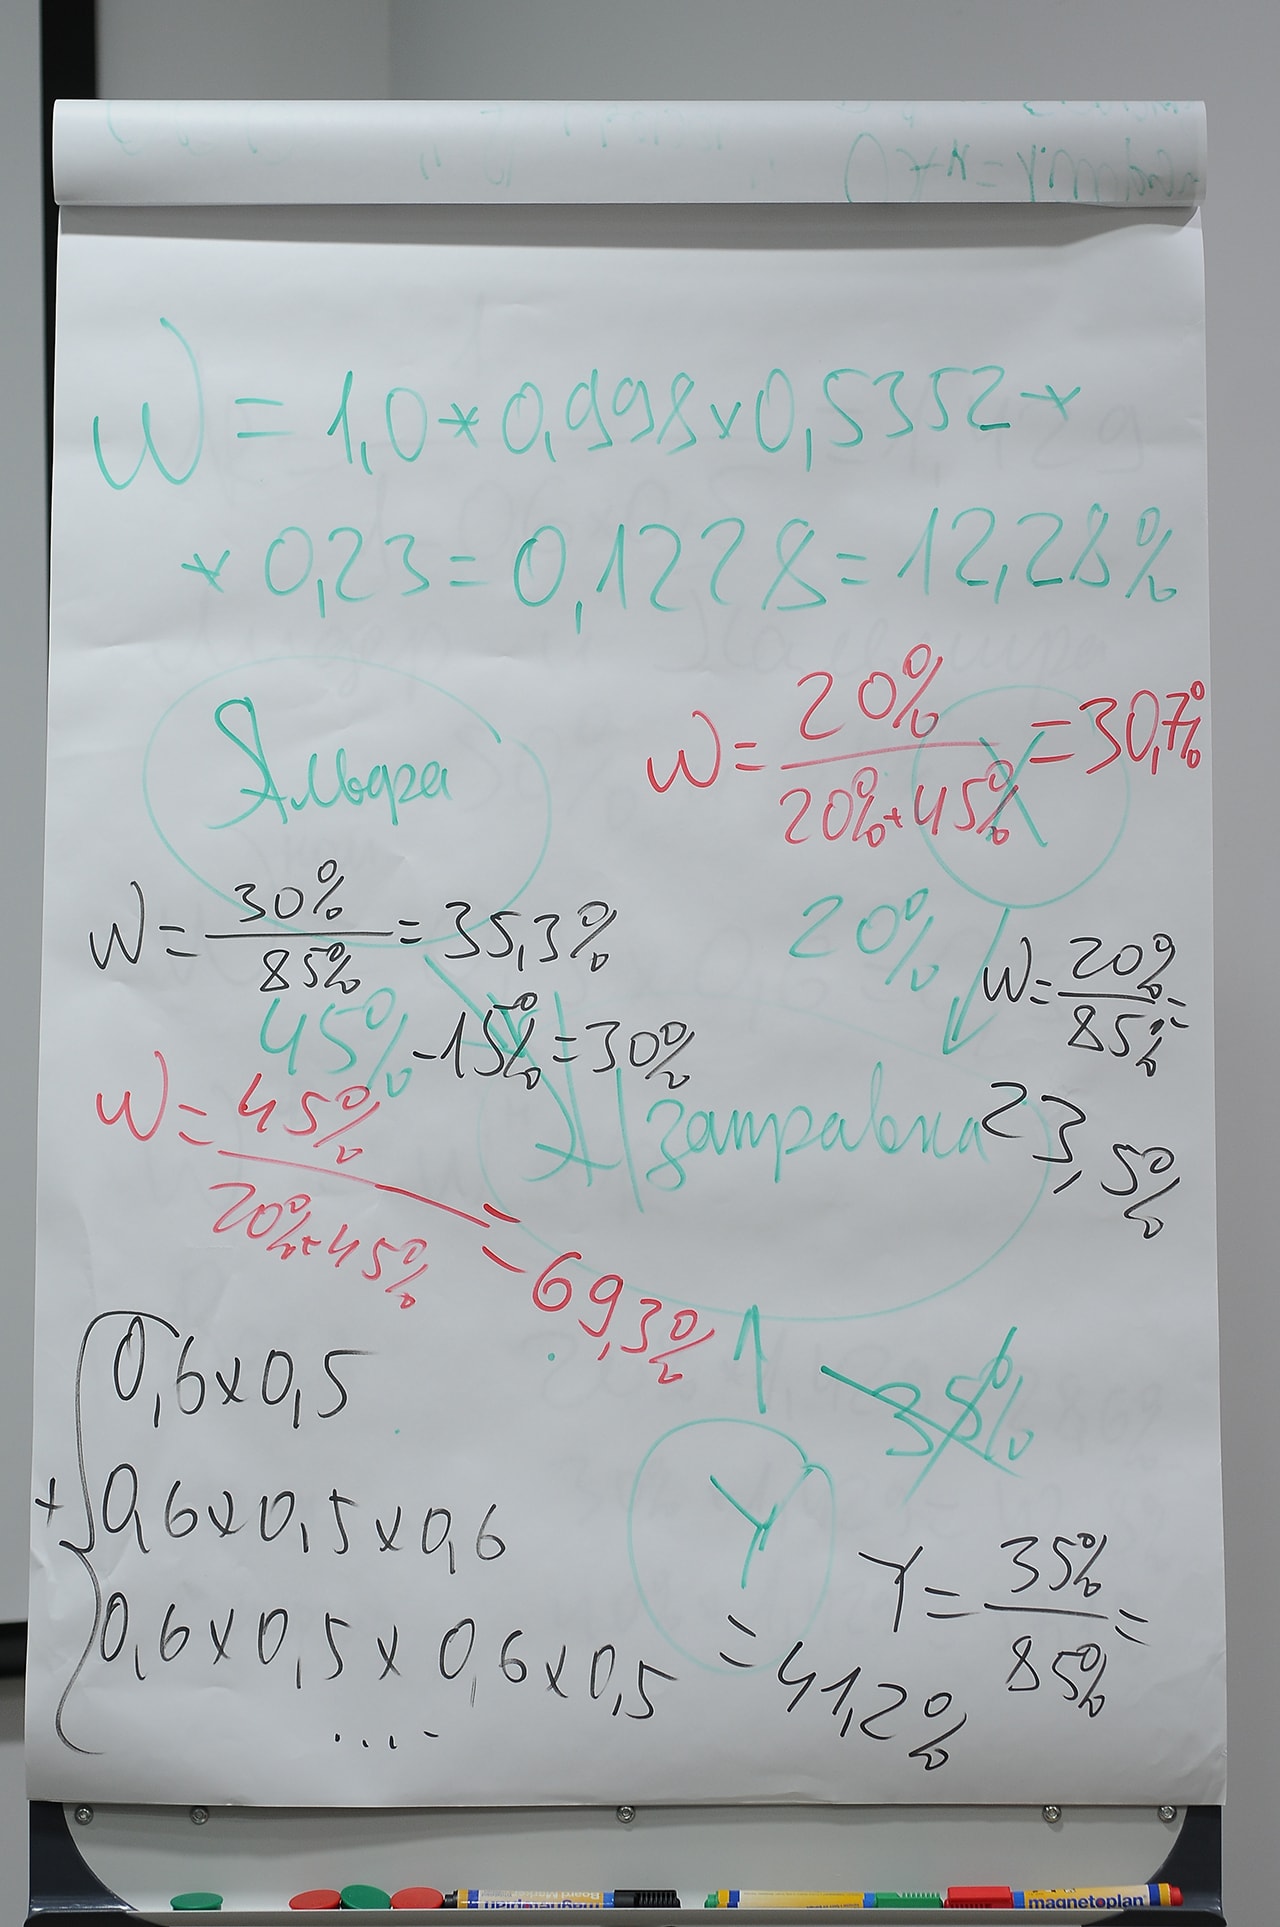 W = 1,0 * 0,998 x 0,5352 *
* 0,23 = 0,1228 = 12,28%
Альфа
W = 20% / 20% + 45% = 30,7%
X
W = 30% / 85% = 35,3%
20%
W = 20% / 85% =
23,5%
45% - 15% = 30%
W = 45% / 20% + 45% = 69,3%
А/заправка
35%
Y
0,6 x 0,5
+ 0,6 x 0,5 x 0,6
0,6 x 0,5 x 0,6 x 0,5
....
Y = 35% / 85% =
= 41,2%
magnetoplan
magnetoplan